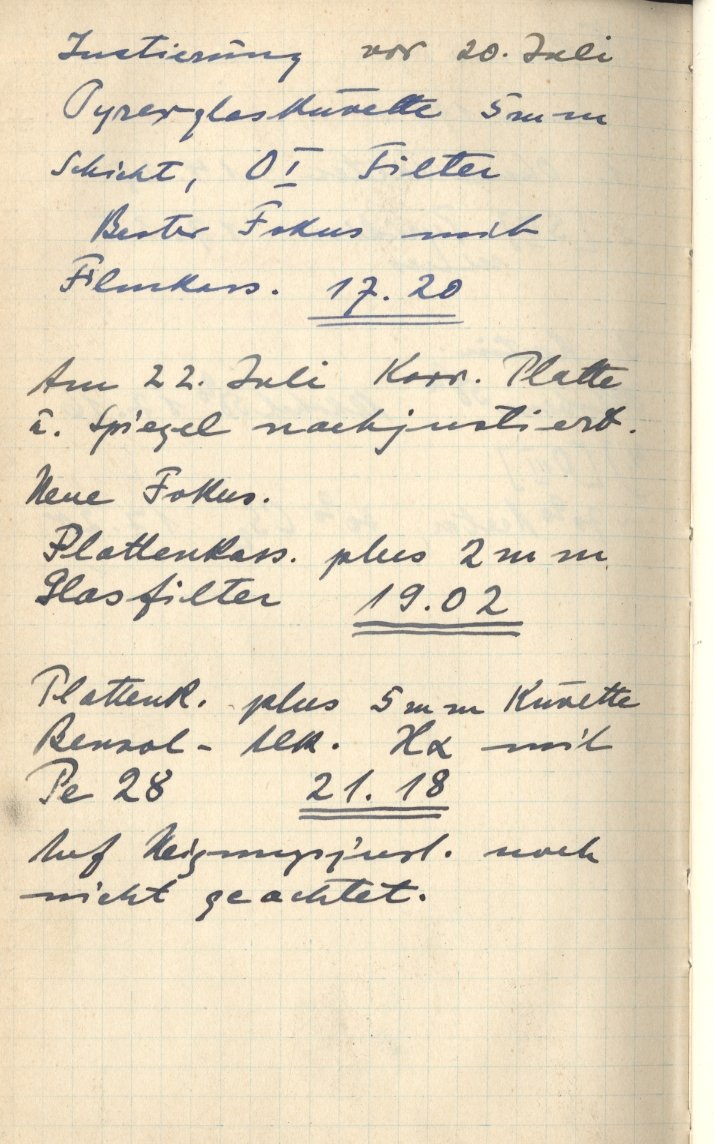 Justierung vor 20. Juli
Pyrexglasküvette 5 mm
Schicht, O I Filter
Bester Fokus mit
Filmkass. 17.20
Am 22. Juli Korr. Platte
u. Spiegel nachjustiert.
Neue Fokus.
Plattenkass. plus 2 mm
Glasfilter 19.02
Plattenk. plus 5 mm Küvette
Benzol - Alk. Hα mit
Pe 28 21.18
Auf Neigungsjust. noch
nicht geachtet.